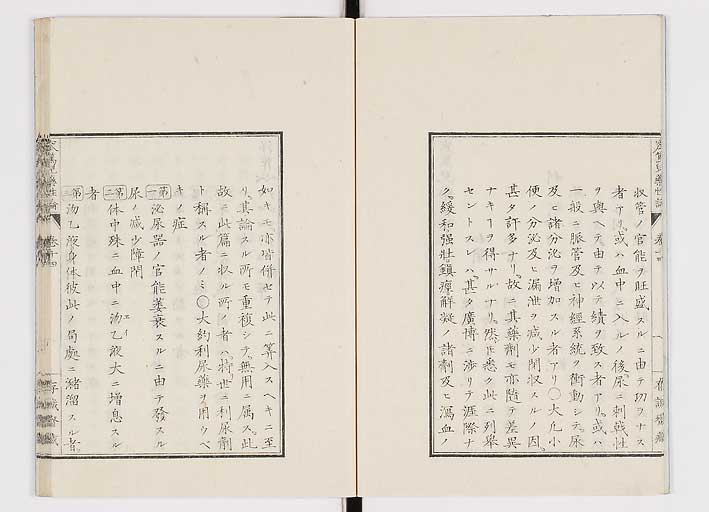 收管ノ官能ヲ旺盛スルニ由テ功ヲナス
者アリ或ハ血中ニ入ルノ後尿ニ刺戟性
ヲ與ヘテ由テ以テ績ヲ致ス者アリ或ハ
一般ニ脈管及ヒ神經系統ヲ衝動シテ尿
及ヒ諸分泌ヲ增加スル者アリ〇大凡小
便ノ分泌及ヒ漏泄ヲ減少閉收スルノ因
甚タ許多ナリ故ニ其藥劑モ亦隨テ差異
ナキヿヲ得サルナリ然𪜈悉ク此ニ列舉
セントスレハ甚タ廣博ニ涉リテ涯際ナ
ク緩和强壯鎭痙解凝ノ諸劑及ヒ瀉血ノ
如キモ亦皆併セテ此ニ算入スヘキニ至
リ其論スル所モ重複シテ無用ニ属ス此
故ニ此篇ニ收ル所ノ者ハ特世ニ利尿劑
ト稱スル者ノミ〇大約利尿藥ヲ用ウベ
キノ症
第一 泌尿器ノ官能萎衰スルニ由テ發スル
尿ノ減少障閉
第二 体中殊ニ血中ニ沕乙液大ニ增息スル
者
第三 沕乙液身体彼此ノ局處ニ瀦溜スル者